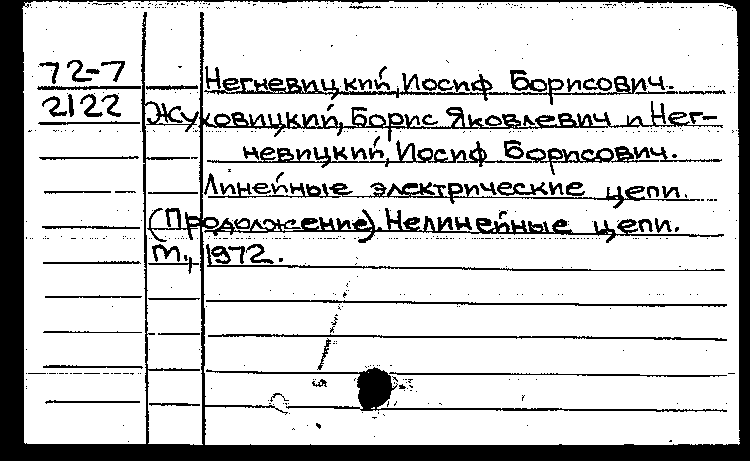 72-7 Негневицкий, Иосиф Борисович.
2122 Жуховицкий, Борис Яковлевич и Нег-
невицкий, Иосиф Борисович.
Линейные электрические цепи.
(Продолжение). Нелинейные цепи.
М., 1972.